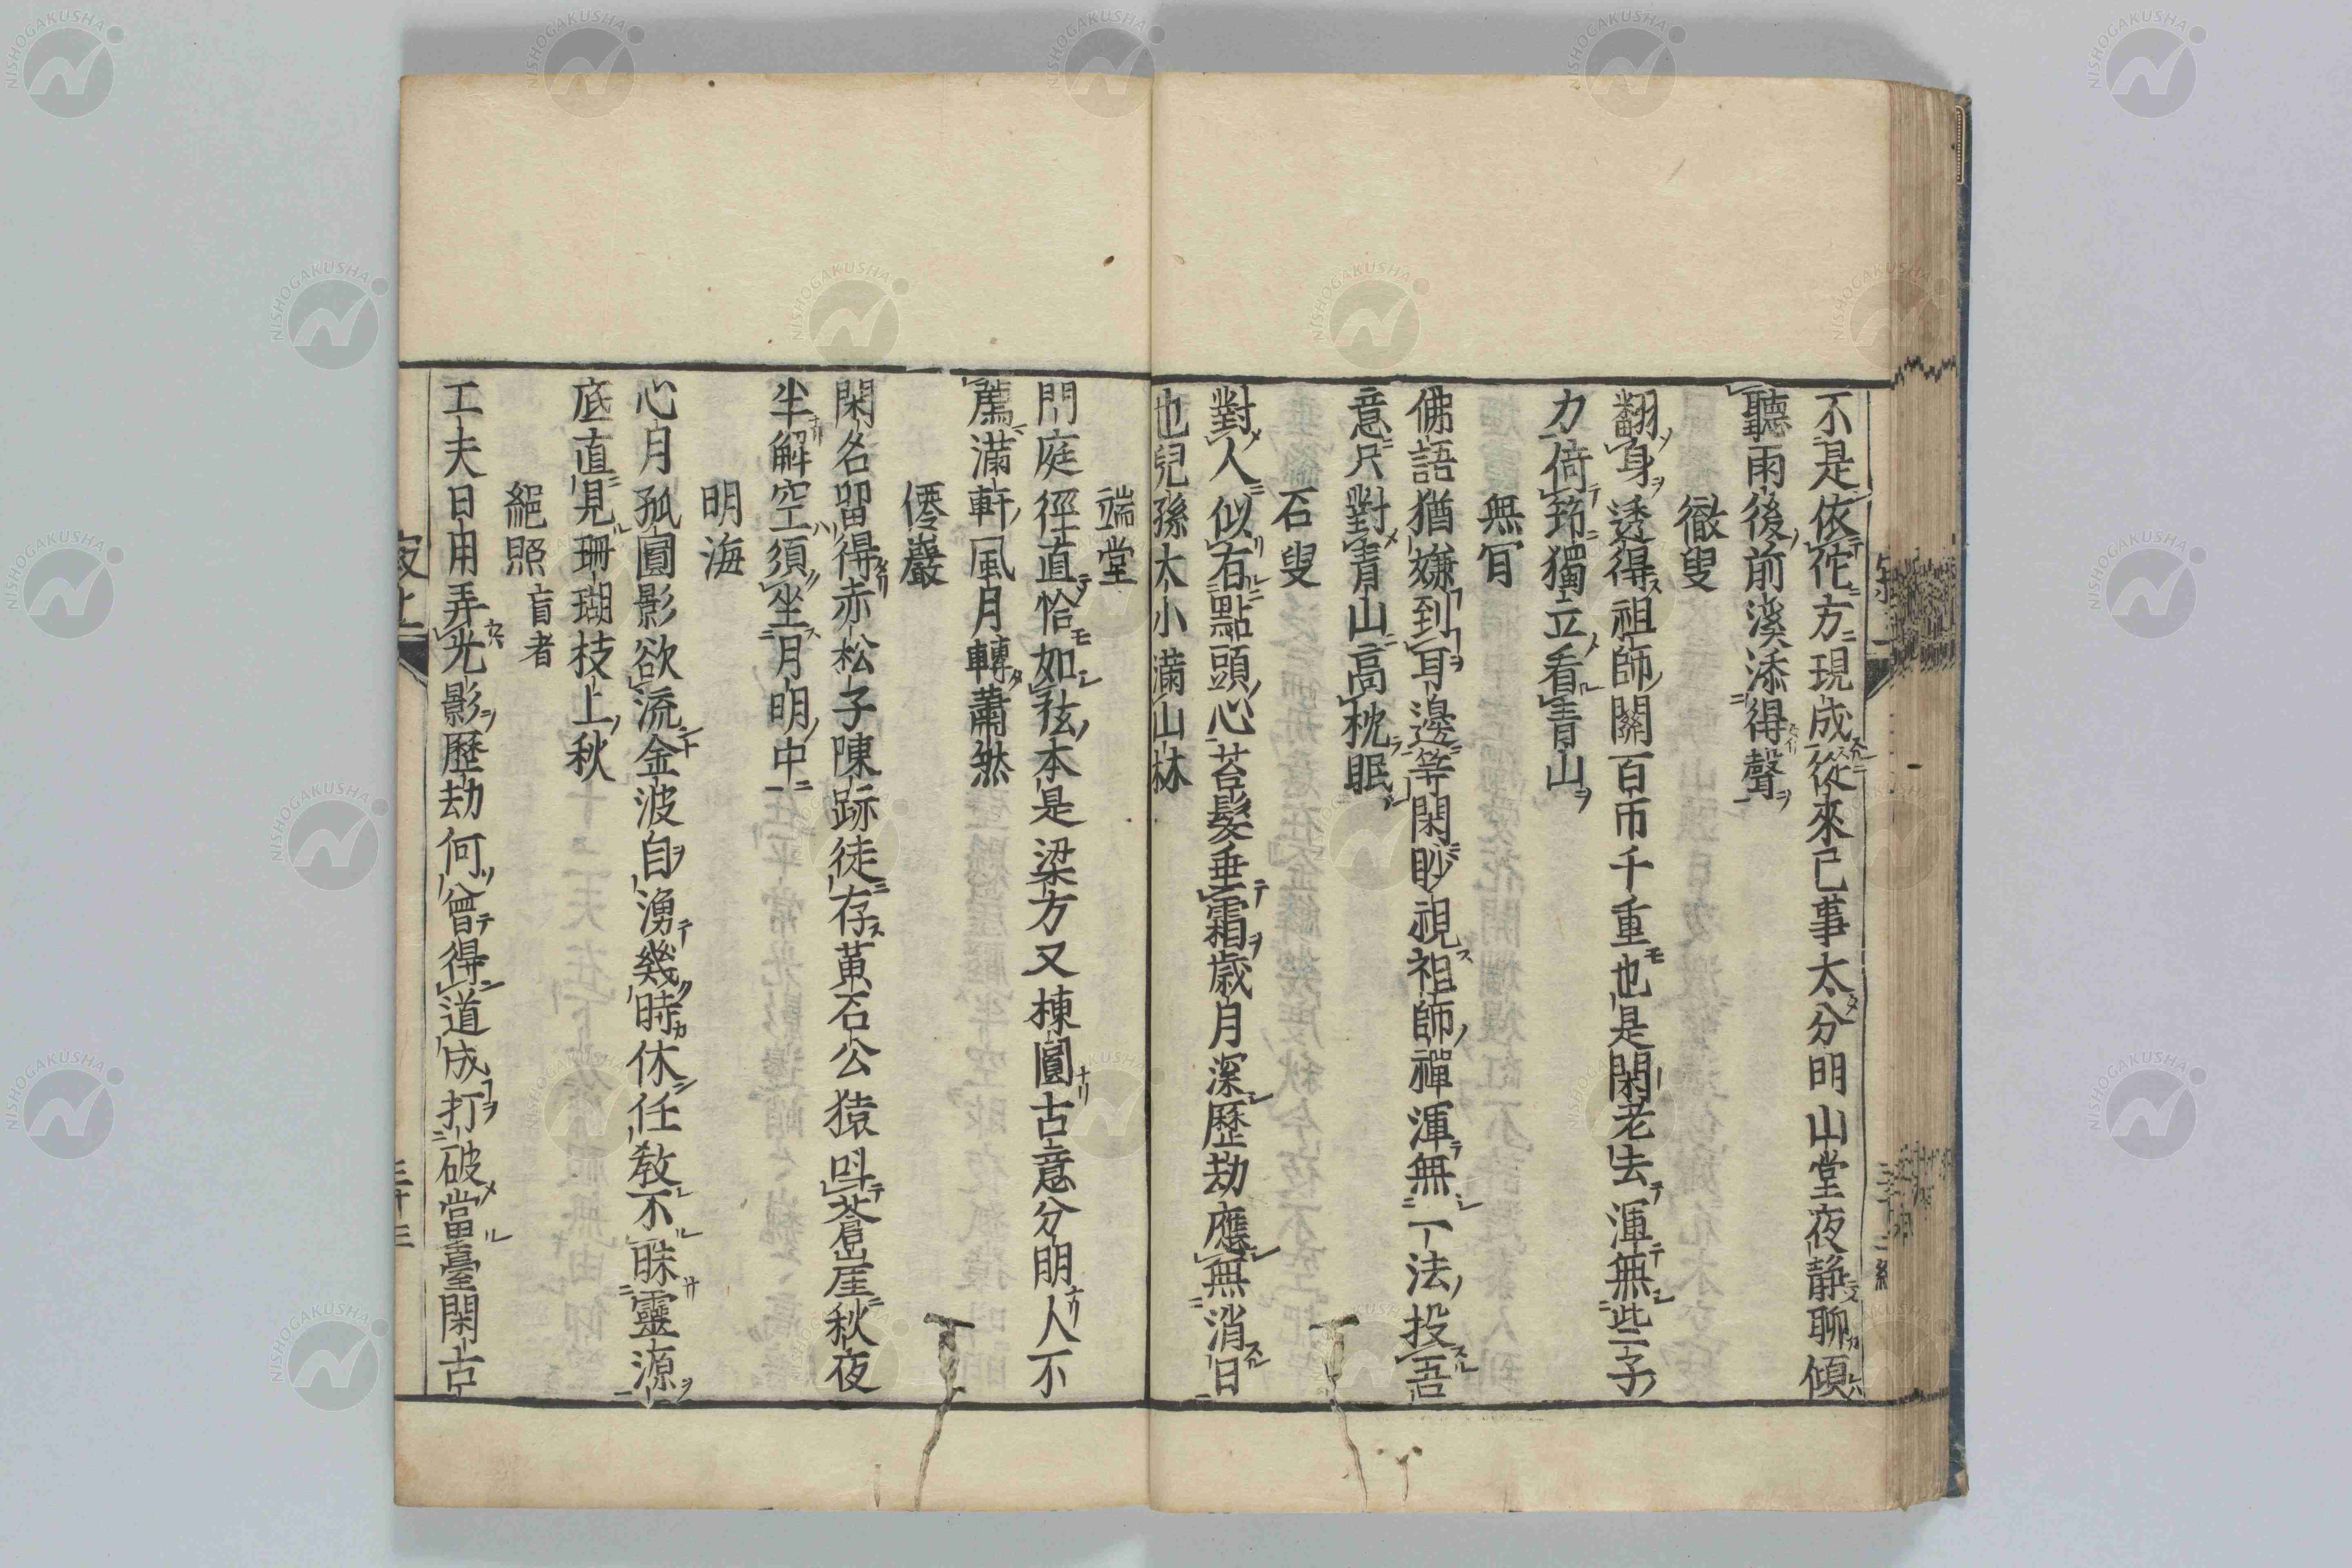 不是依佗方現成從來己事太分明山堂夜靜聊傾
聽雨後前溪添得聲
徹叟
翻身透得祖師關百帀千重也是閑老去渾無些子
力倚筇獨立看青山
無肎
佛語猶嫌到耳邊等閑眇視祖師禪渾無一法投吾
意只對青山高枕眠
石叟
對人似有點頭心苔髮垂霜歲月深歷劫應無消日
也兒孫太小滿山林
端堂
門庭徑直恰如弦本是梁方又棟圓古意分明人不
薦滿軒風月轉蕭然
僊巖
閑名留得赤松子陳跡徒存黃石公猿叫蒼崖秋夜
半解空須坐月明中
明海
心月孤圓影欲流金波自湧幾時休任教不昧靈源
底直見珊瑚枝上秋
絕照 盲者
工夫日用弄光影歷劫何曾得道成打破當臺閑古
三十三
NISHOGAKUSHA